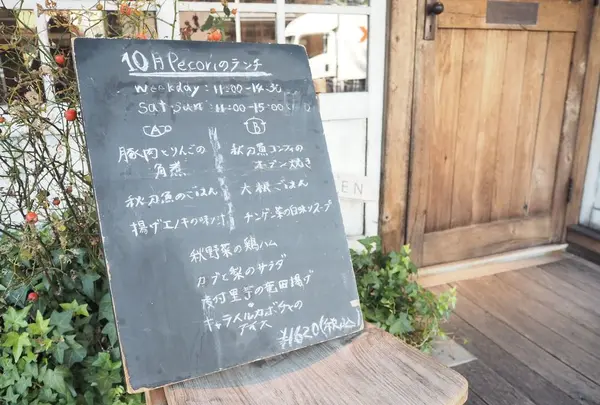 10月Pecoriのランチ
weekday : 11:00-14:30
sat・sun : 11:00-15:00
A
B
豚肉とりんごの
角煮
秋刀魚コンフィの
オーブン焼き
秋刀魚のごはん
大根ごはん
揚げエノキの味噌汁
チンゲン菜の白味噌スープ
秋野菜の鶏ハム
カブと梨のサラダ
里芋の竜田揚げ
キャラメルカボチャの
アイス
¥1620(税込)
EN